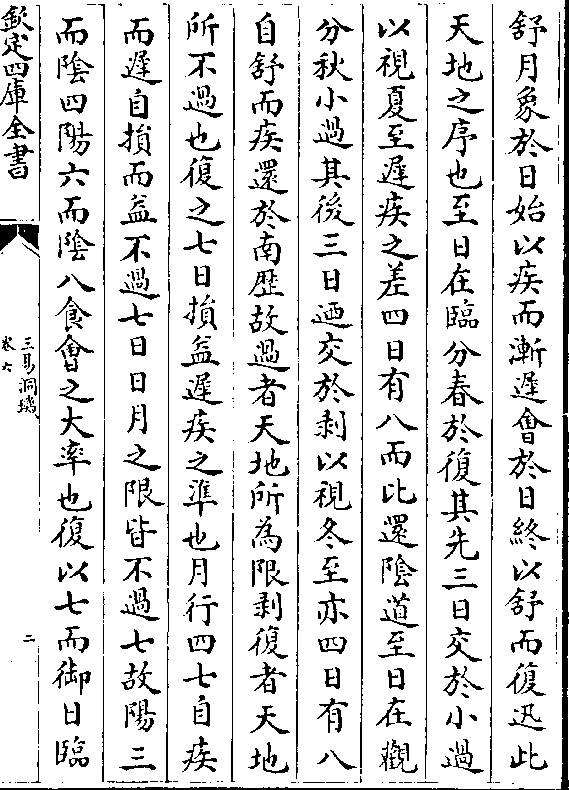 舒月象於日始以疾而漸遲會於日終以舒而復迅此
天地之序也至日在臨分春於復其先三日交於小過
以視夏至遲疾之差四日有八而比還陰道至日在觀
分秋小過其後三日迺交於剥以視冬至亦四日有八
自舒而疾還於南歴故過者天地所為限剥復者天地
所不過也復之七日損益遲疾之準也月行四七自疾
而遲自損而益不過七日日月之限皆不過七故陽三
而陰四陽六而陰八食會之大率也復以七而御日臨
欽定四庫全書
三易洞璣
卷六
二